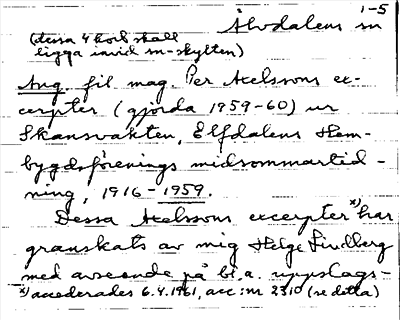 1-5
Älvdalens sn
(dessa 4 kort skall
ligga invid sn-skylten)
Ang. fil mag. Per Axelssons ex-
cerpter (gjorda 1959-60) ur
Skansvakten, Elfdalens Hem-
bygdsförenings midsommartid-
ning, 1916-1959.
Dessa Axelssons excerpter x) har
granskats av mig Helge Lindberg
med avseende på bl.a. uppslags-
x) accederades 6.4.1961, acc: nr 2310 (se detta)